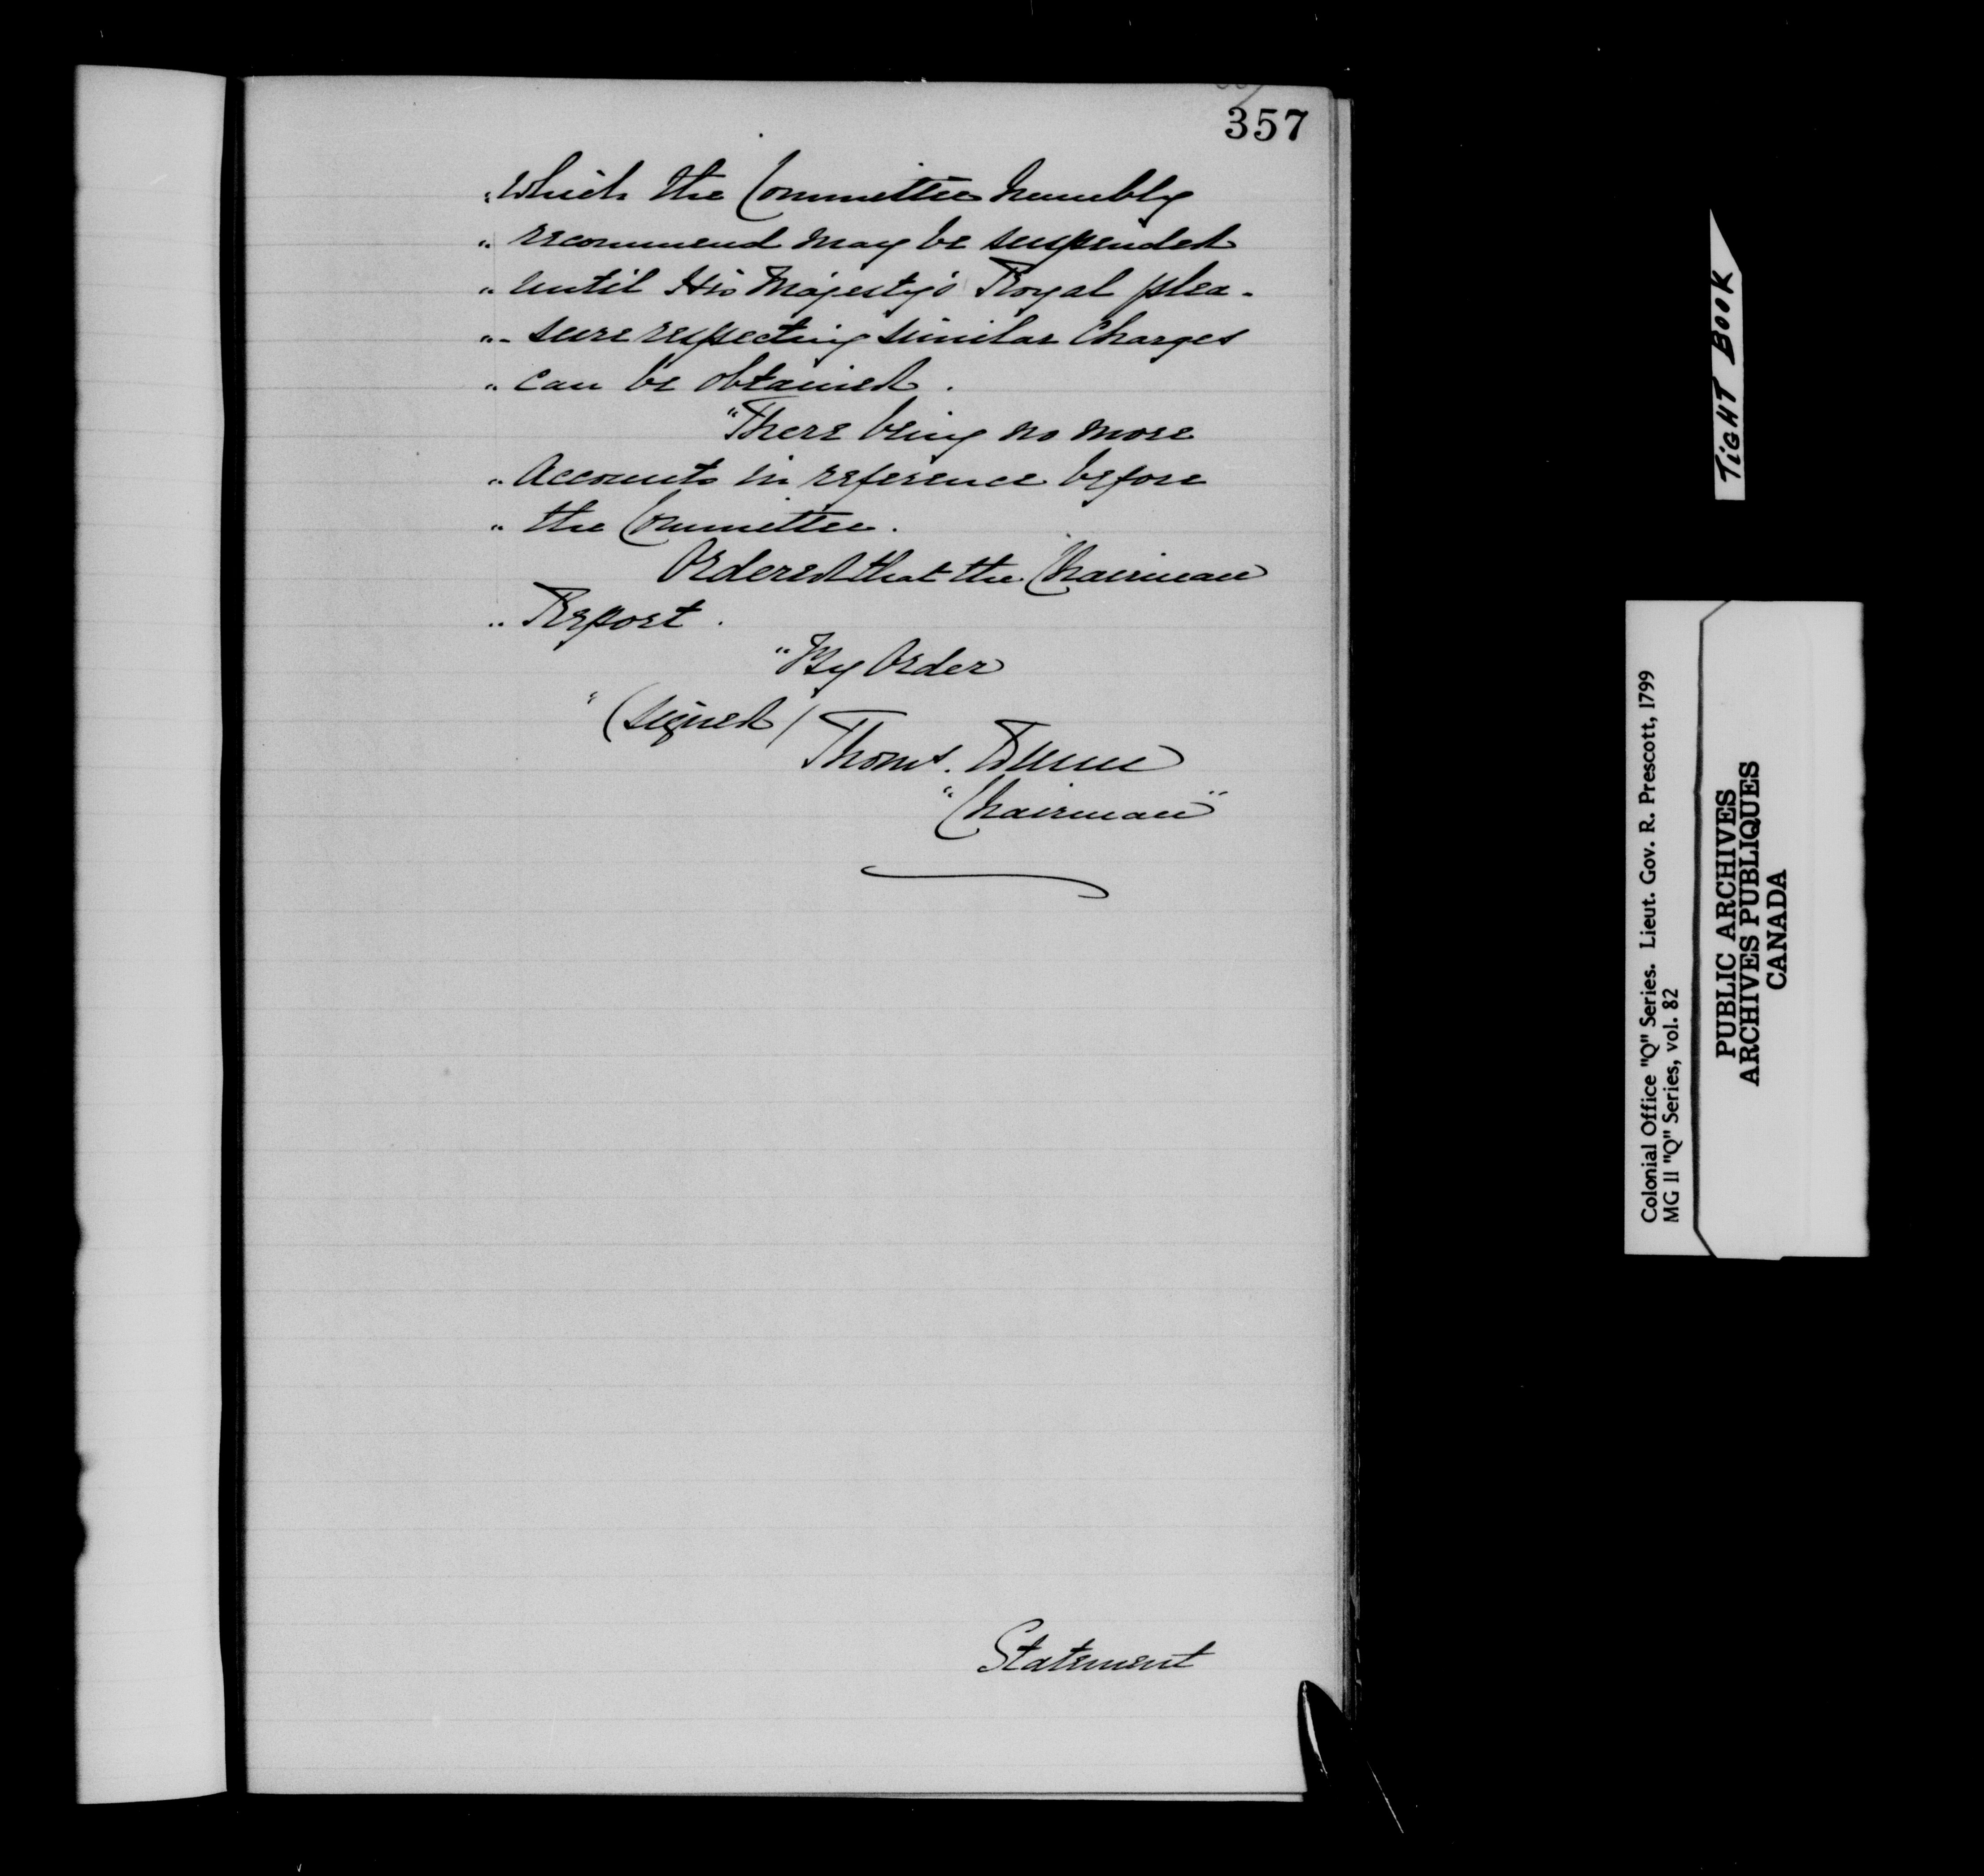 357
"which the Committee humbly
"recommend may be suspended
"until His Majesty's Royal plea-
"-sure respecting similar Charges
"can be obtained.
"There being no more
"Accounts in reference before
"the Committee.
Ordered that the Chairman
"Report.
"By Order
"(signed)
Thoms. Dunn
"Chairman"
Statement
TIGHT BOOK
Colonial Office "Q" Series. Lieut. Gov. R. Prescott, 1799
MG 11 "Q" Series, vol. 82
PUBLIC ARCHIVES
ARCHIVES PUBLIQUES
CANADA